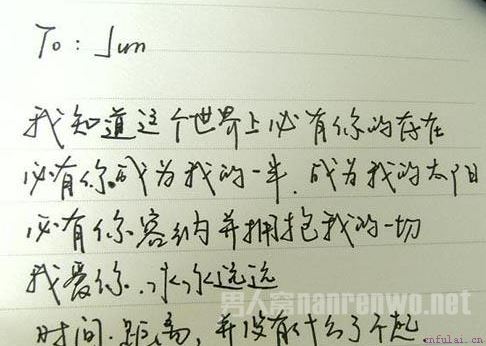 To: Jun
我知道这个世界上必有你的存在
必有你.成为我的一半.成为我的太阳
必有你容纳并拥抱我的一切
我爱你.永永远远
男人窝nanrenwo.net
时间.距离,并没有什么了不起
cnfulai.cn